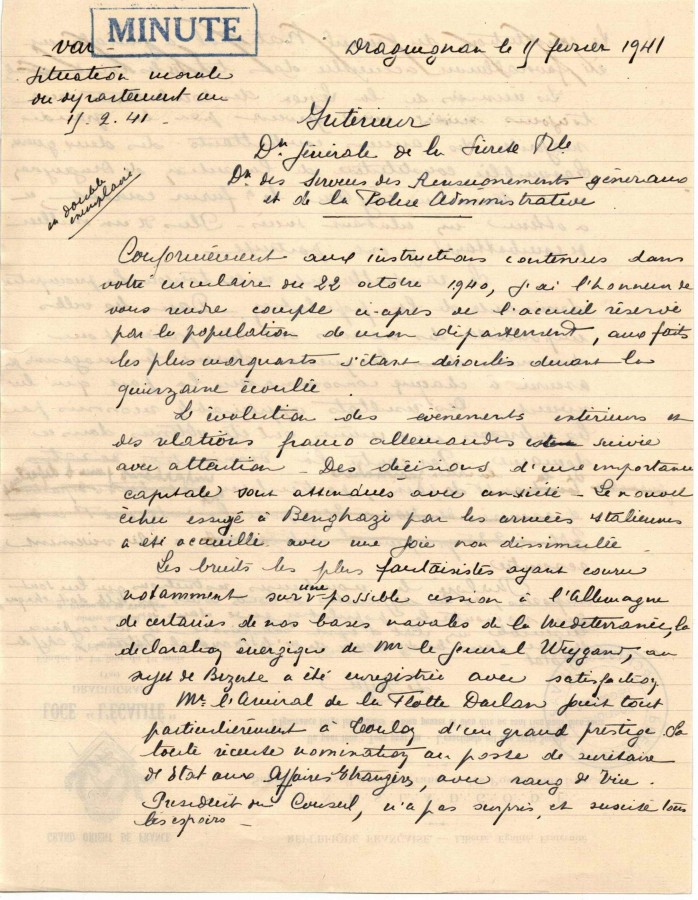 MINUTE
Var
Draguignan le 15 février 1941
Situation morale
du département au
15.2.41.
Intérieur
Dn Générale de la Sûreté Nle
Dn des Services des Renseignements généraux
et de la Police Administrative
en double
exemplaire
Conformément aux instructions contenues dans
votre circulaire du 22 octobre 1940, j'ai l'honneur de
vous rendre compte ci-après de l'accueil réservé
par la population de mon département, aux faits
les plus marquants s'étant déroulés durant la
quinzaine écoulée.
L'évolution des événements intérieurs et
des relations franco allemandes est suivie
avec attention - Des décisions d'une importance
capitale sont attendues avec anxiété - Le nouvel
échec essuyé à Benghazi par les armées italiennes
a été accueilli avec une joie non dissimulée.
Les bruits les plus fantaisistes ayant couru
notamment sur une possible cession à l'Allemagne
de certaines de nos bases navales de la Méditerranée, la
déclaration énergique de Mr le Général Weygand, au
sujet de Bizerte a été enregistrée avec satisfaction
Mr l'Amiral de la Flotte Darlan jouit tout
particulièrement à Toulon d'un grand prestige. Sa
toute récente nomination au poste de secrétaire
de Etat aux Affaires Etrangères, avec rang de Vice.
Président du Conseil, n'a pas surpris, et suscité tous
les espoirs -
LOGE "L'EGALITE"
GRAND ORIENT DE FRANCE
REPUBLIQUE FRANÇAISE